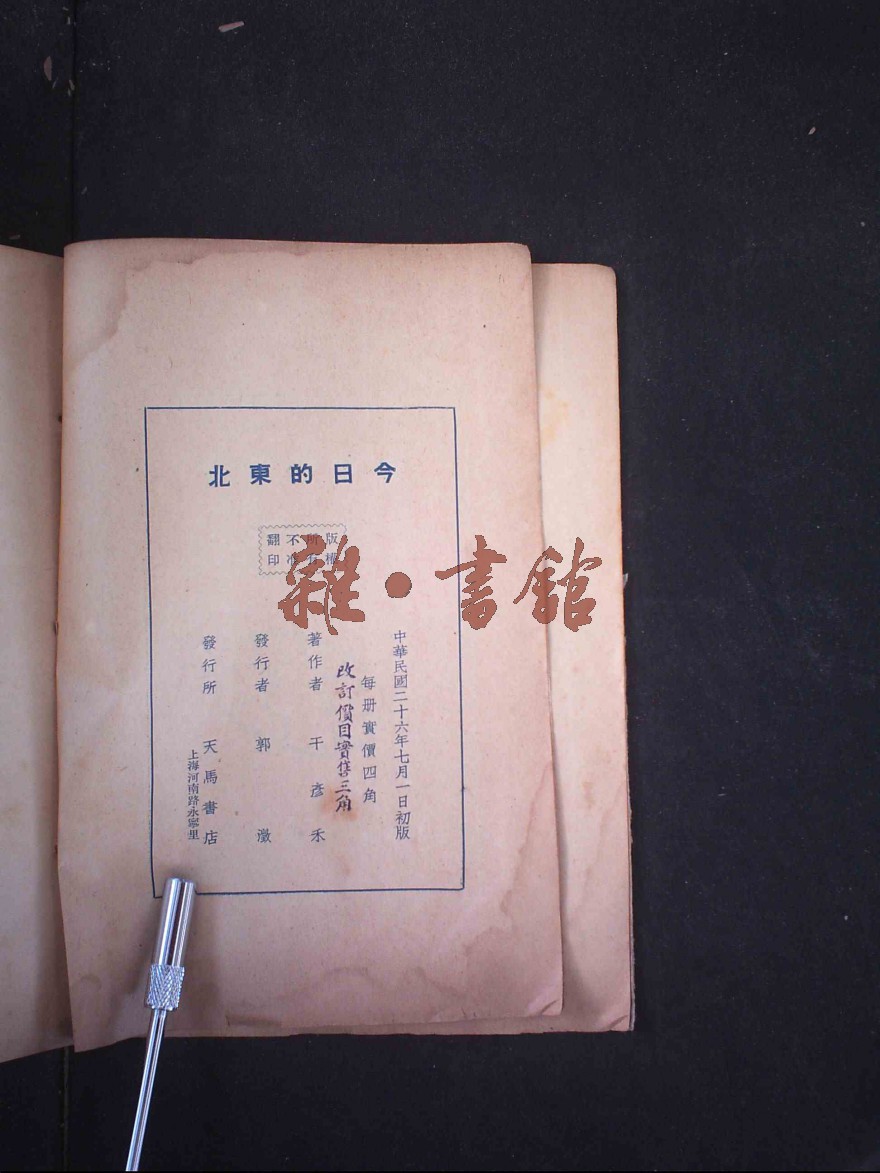 今日的東北
版權
所有
不准
翻印
中華民國二十六年七月一日初版
每册實價四角
改訂價目實售三角
著作者 干彥禾
發行者 郭澂
發行所 天馬書店
上海河南路永寧里
雜·書館